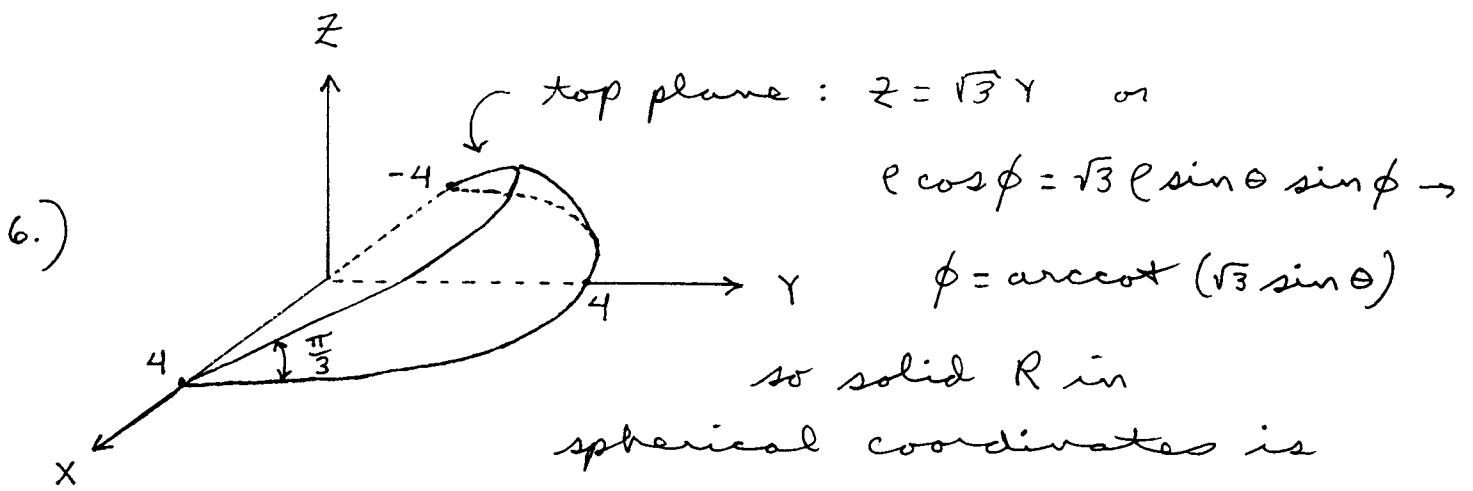 Z
top plane : Z = √3 Y or
-4
ρ cos φ = √3 ρ sin θ sin φ →
6.)
φ = arccot (√3 sin θ)
Y
4
4
π/3
so solid R in
spherical coordinates is
X